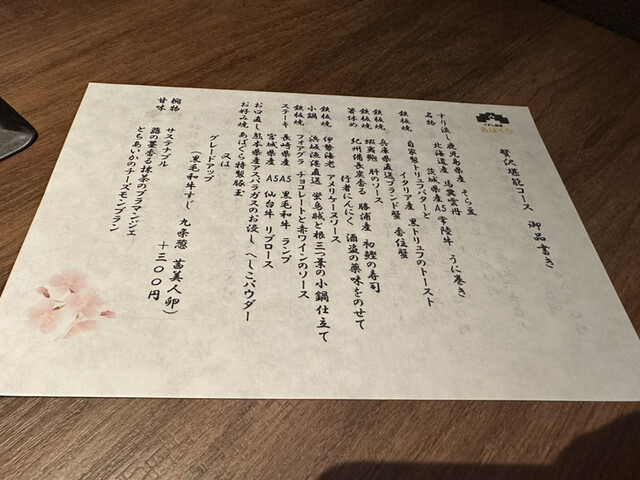 贅沢堪能コース 御品書き
すり流し 鹿児島県産 そら豆
名物 北海道産 馬糞雲丹 うに巻き
茨城県産A5常陸牛
鉄板焼 自家製トリュフバターと
イタリア産 黒トリュフのトースト
鉄板焼 兵庫県直送ブランド蟹 香住蟹
鉄板焼 蝦夷鮑 肝のソース
箸休め 紀州備長炭香る 勝浦産 初鰹の寿司
行者にんにく 酒盗の薬味をのせて
鉄板焼 伊勢海老 アメリケーヌソース
小鍋 浜坂漁港直送 蛍烏賊と根三つ葉の小鍋仕立て
鉄板焼 フォアグラ チョコレートと赤ワインのソース
ステーキ 長崎県産 A5 黒毛和牛 ランプ
宮城県産 A5 仙台牛 リブロース
お口直し 熊本県産アスパラガスのお浸し へしこパウダー
お好み焼 あばぐら特製豚玉
又は
グレードアップ
(黒毛和牛すじ 九条葱 茜美人卵)
+三〇〇円
椀物
甘味 サステナブル
蕗の薹香る抹茶のブランマンジェ
とちあいかのチーズモンブラン